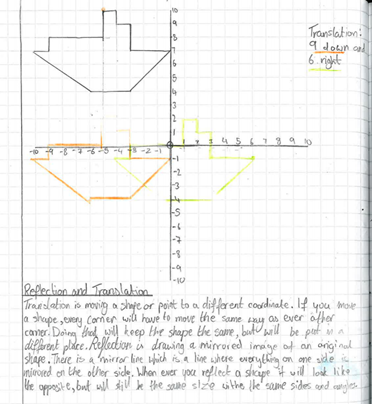 10
9
8
7
6
5
4
3
2
1
Translation:
9 down and
6 right
-10 -9 -8 -7 -6 -5 -4 -3 -2 -1 0 1 2 3 4 5 6 7 8 9 10
-1
-2
-3
-4
-5
-6
-7
-8
-9
-10
Reflection and Translation
Translation is moving a shape or point to a different coordinate. If you move
a shape, every corner will have to move the same way as ever other
corner. Doing that will keep the shape the same, but will be put in a
different place. Reflection is drawing a mirrored image of an original
shape. There is a mirror line which is a line where everything on one side is
mirrored on the other side. When ever you reflect a shape it will look like
the opposite, but will still be the same size withe the same sides and angles.